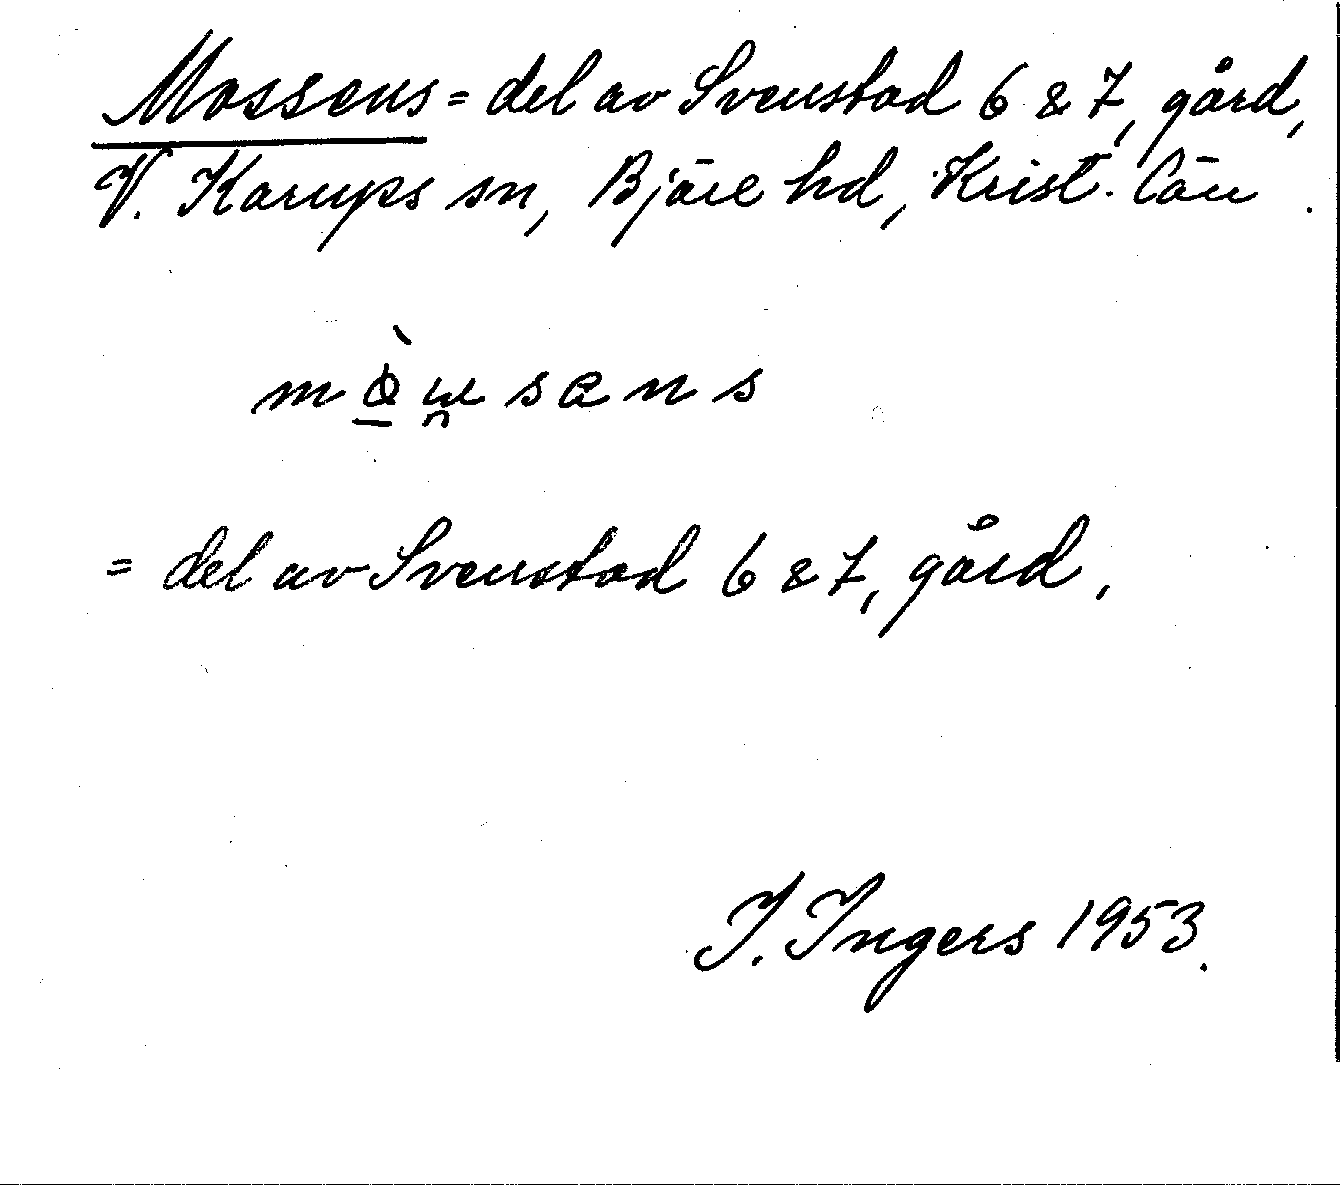 Mossens = del av Svenstad 6 & 7, gård,
V. Karups sn, Bjäre hd, Krist. län.
= del av Svenstad 6 & 7, gård.
I. Ingers 1953.